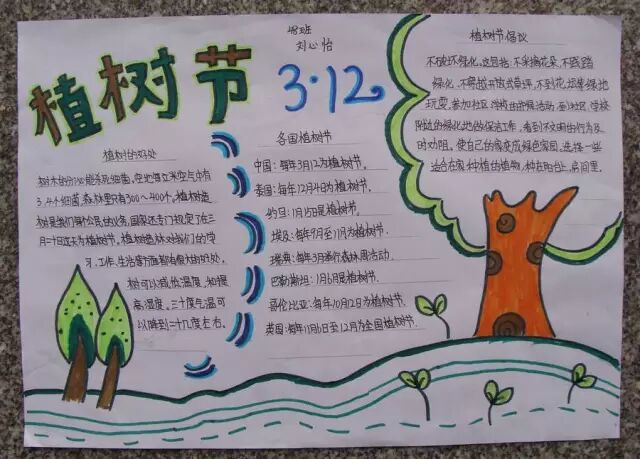 植树节
3.12
四班
刘心怡
植树的好处
树木的分泌能杀死细菌,空地每立米空气中有
3.4个细菌,森林里只有300~400个,植树造
林是我们每个公民的义务,国家还专门规定了在三
月十二日这天为植树节,植树造林对我们的学
习、工作、生活等方面都有很大的好处。
树可以减低温度,和提
高湿度。三十度气温可
以降到二十几度左右。
各国植树节
中国:每年3月12为植树节。
泰国:每年12月4日为植树节。
约旦:1月15日是植树节。
埃及:每年9月至11月为植树节。
瑞典:每年3月举行森林周活动。
巴勒斯坦:1月6是植树节。
哥伦比亚:每年10月12日为植树节。
英国:每年11月6日至12月为全国植树节。
植树节倡议
不破坏绿化,这包括:不采摘花朵、不践踏
绿化、不穿越开放式草坪、不到花坛等绿地
玩耍。参加社区、学校的环保活动。到社区、学校
附近的绿化地做保洁工作,看到不文明的行为及
时劝阻。使自己的家变成绿色家园,选择一些
适合在家种植的植物,种在阳台上、房间里。